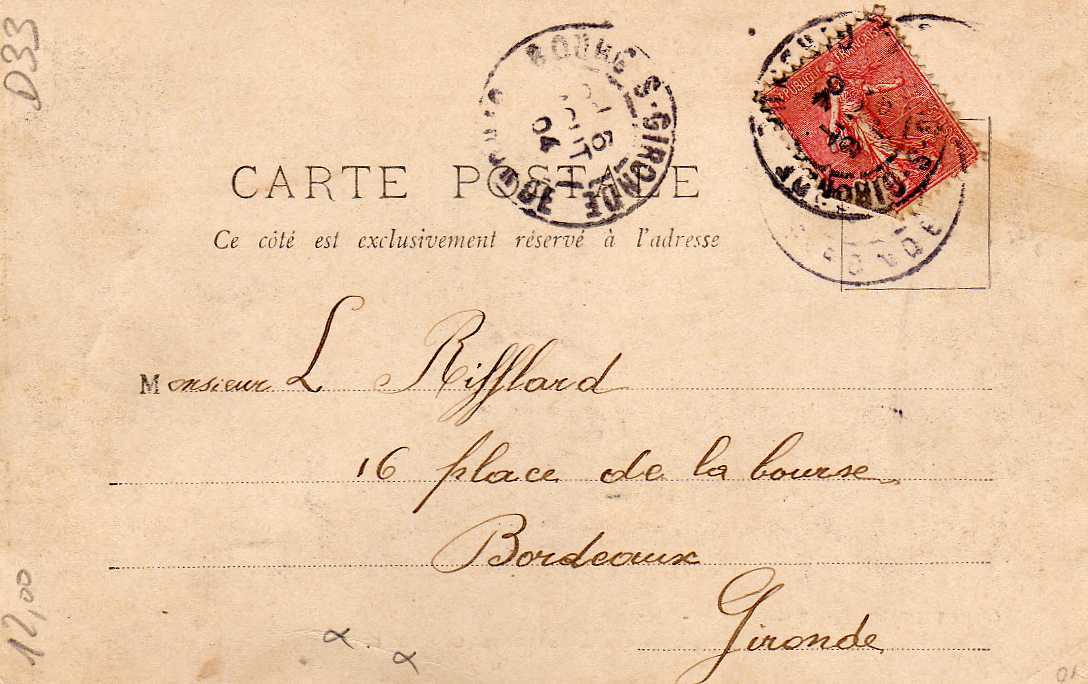 D33
BOURG S-GIRONDE
5
AOUT
04
REPUBLIQUE FRANÇAISE
CARTE POSTALE
Ce côté est exclusivement réservé à l'adresse
Monsieur L Rifflard
16 place de la bourse
Bordeaux
Gironde
12,00